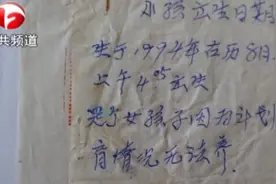 小孩出生日期
生于1994年古历8月
上午4点出生
是个女孩子因为计划
育情况无法养.
共频道